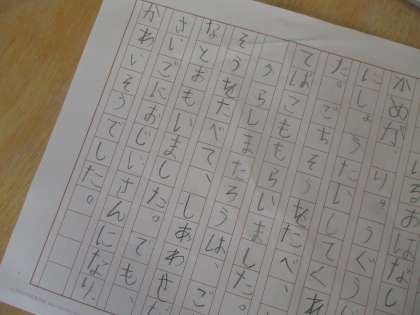 るおはなし
かめが、りゅうぐうじ
にしょうたいしてく
た。ごちそうをたべ、
てばこももらいました。
うらしまたろうは、ご
そうをたべて、しあわせだ
なとおもいました。でも、
さいごにおじいさんになり、
かわいそうでした。